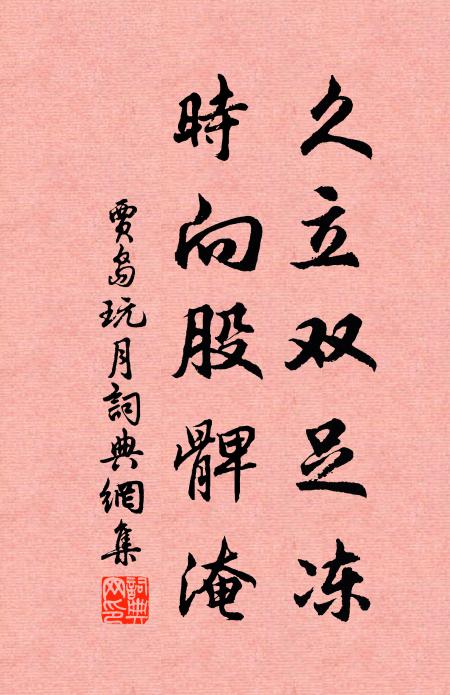 久立双足冻
時向股髀淹
賈島玩月詞典網集
詞典網印